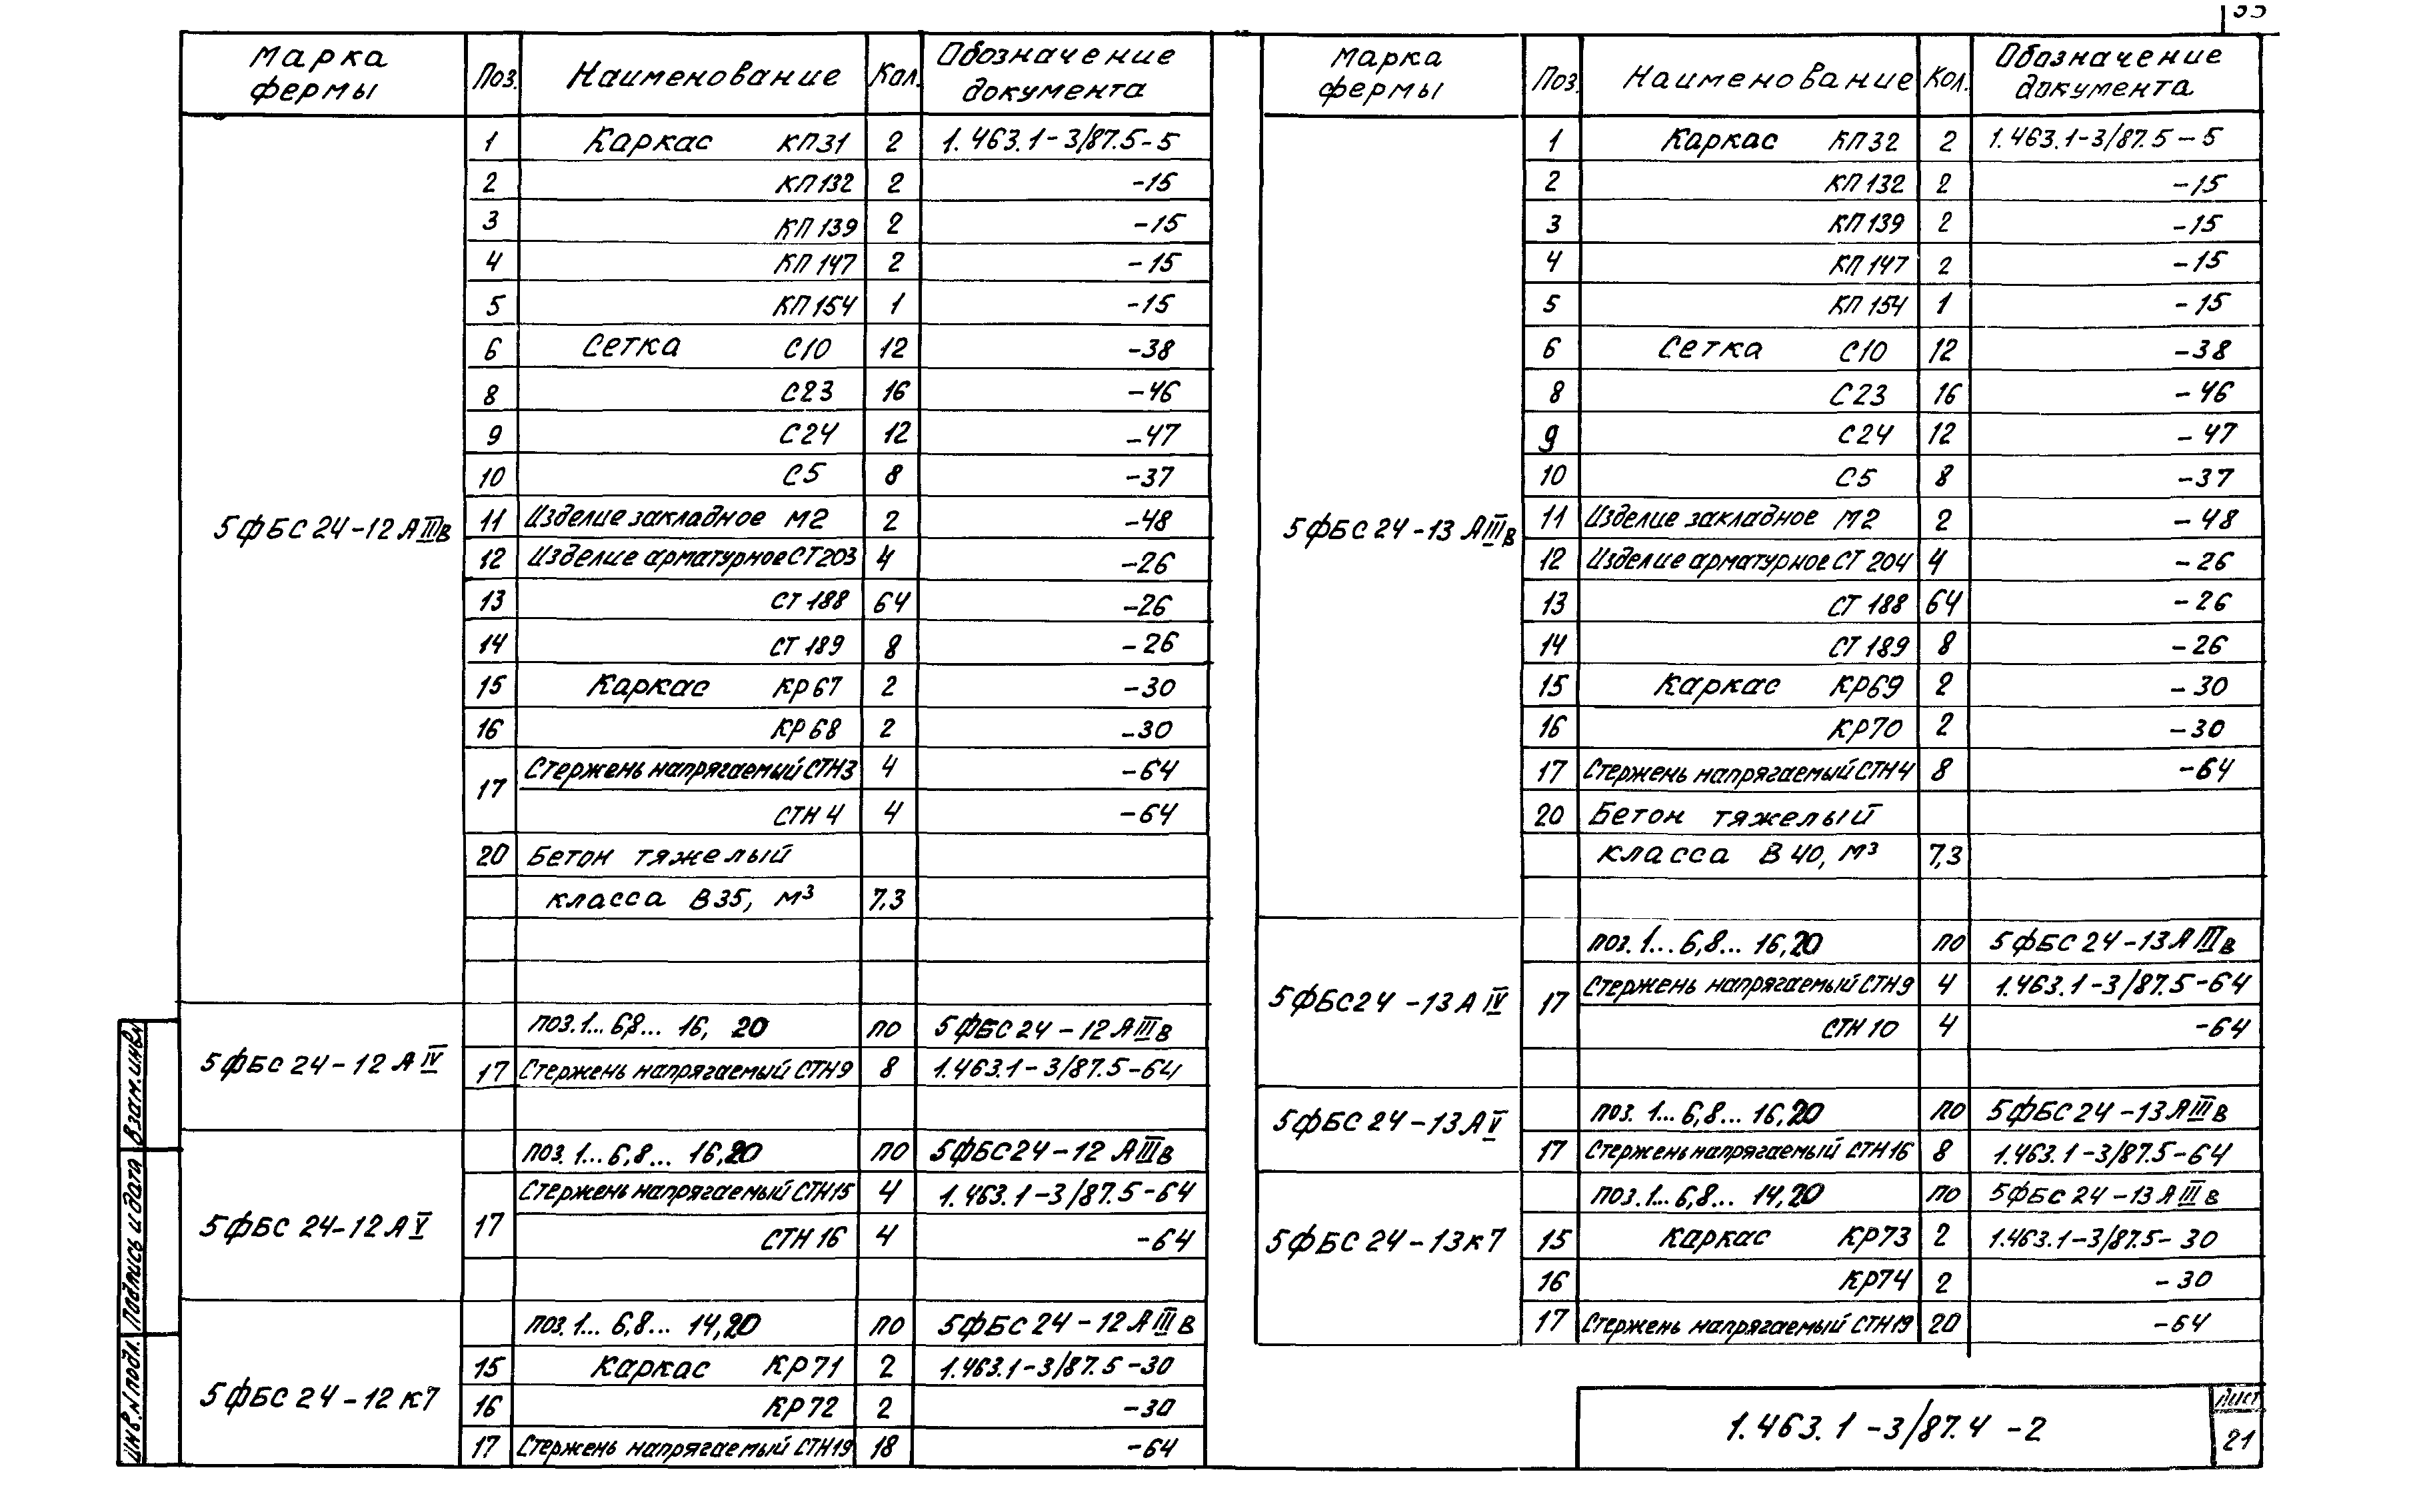 Марка фермы Поз. Наименование Кол. Обозначение документа
1 Каркас КП31 2 1.463.1-3/87.5-5
2 КП132 2 -15
3 КП139 2 -15
4 КП147 2 -15
5 КП154 1 -15
6 Сетка С10 12 -38
8 С23 16 -46
9 С24 12 -47
10 С5 8 -37
5ФБС24-12АIIIв 11 Изделие закладное М2 2 -48
12 Изделие арматурное СТ203 4 -26
13 СТ188 64 -26
14 СТ189 8 -26
15 Каркас КР67 2 -30
16 КР68 2 -30
17 Стержень напрягаемый СТН3 4 -64
СТН4 4 -64
20 Бетон тяжелый
класса В35, м³ 7.3
поз.1...6,8... 16, 20 по 5ФБС24-12АIIIв
5ФБС24-12АIV 17 Стержень напрягаемый СТН9 8 1.463.1-3/87.5-64
поз.1...6,8... 16,20 по 5ФБС24-12АIIIв
5ФБС24-12АV 17 Стержень напрягаемый СТН15 4 1.463.1-3/87.5-64
СТН16 4 -64
поз.1...6,8... 14,20 по 5ФБС24-12АIIIв
15 Каркас КР71 2 1.463.1-3/87.5-30
5ФБС24-12К7 16 КР72 2 -30
17 Стержень напрягаемый СТН19 18 -64
Марка фермы Поз. Наименование Кол. Обозначение документа
1 Каркас КП32 2 1.463.1-3/87.5-5
2 КП132 2 -15
3 КП139 2 -15
4 КП147 2 -15
5 КП154 1 -15
6 Сетка С10 12 -38
8 С23 16 -46
9 С24 12 -47
10 С5 8 -37
5ФБС24-13АIIIв 11 Изделие закладное М2 2 -48
12 Изделие арматурное СТ204 4 -26
13 СТ188 64 -26
14 СТ189 8 -26
15 Каркас КР69 2 -30
16 КР70 2 -30
17 Стержень напрягаемый СТН4 8 -64
20 Бетон тяжелый
класса В40, м³ 7,3
поз.1...6,8... 16,20 по 5ФБС24-13АIIIв
5ФБС24-13АIV 17 Стержень напрягаемый СТН9 4 1.463.1-3/87.5-64
СТН10 4 -64
поз.1...6,8... 16,20 по 5ФБС24-13АIIIв
5ФБС24-13АV 17 Стержень напрягаемый СТН16 8 1.463.1-3/87.5-64
поз.1...6,8... 14,20 по 5ФБС24-13АIIIв
5ФБС24-13К7 15 Каркас КР73 2 1.463.1-3/87.5-30
16 КР74 2 -30
17 Стержень напрягаемый СТН19 20 -64
1.463.1-3/87.4-2
Лист
21
Взам.инв.N
Подпись и дата
Инв.N подл.